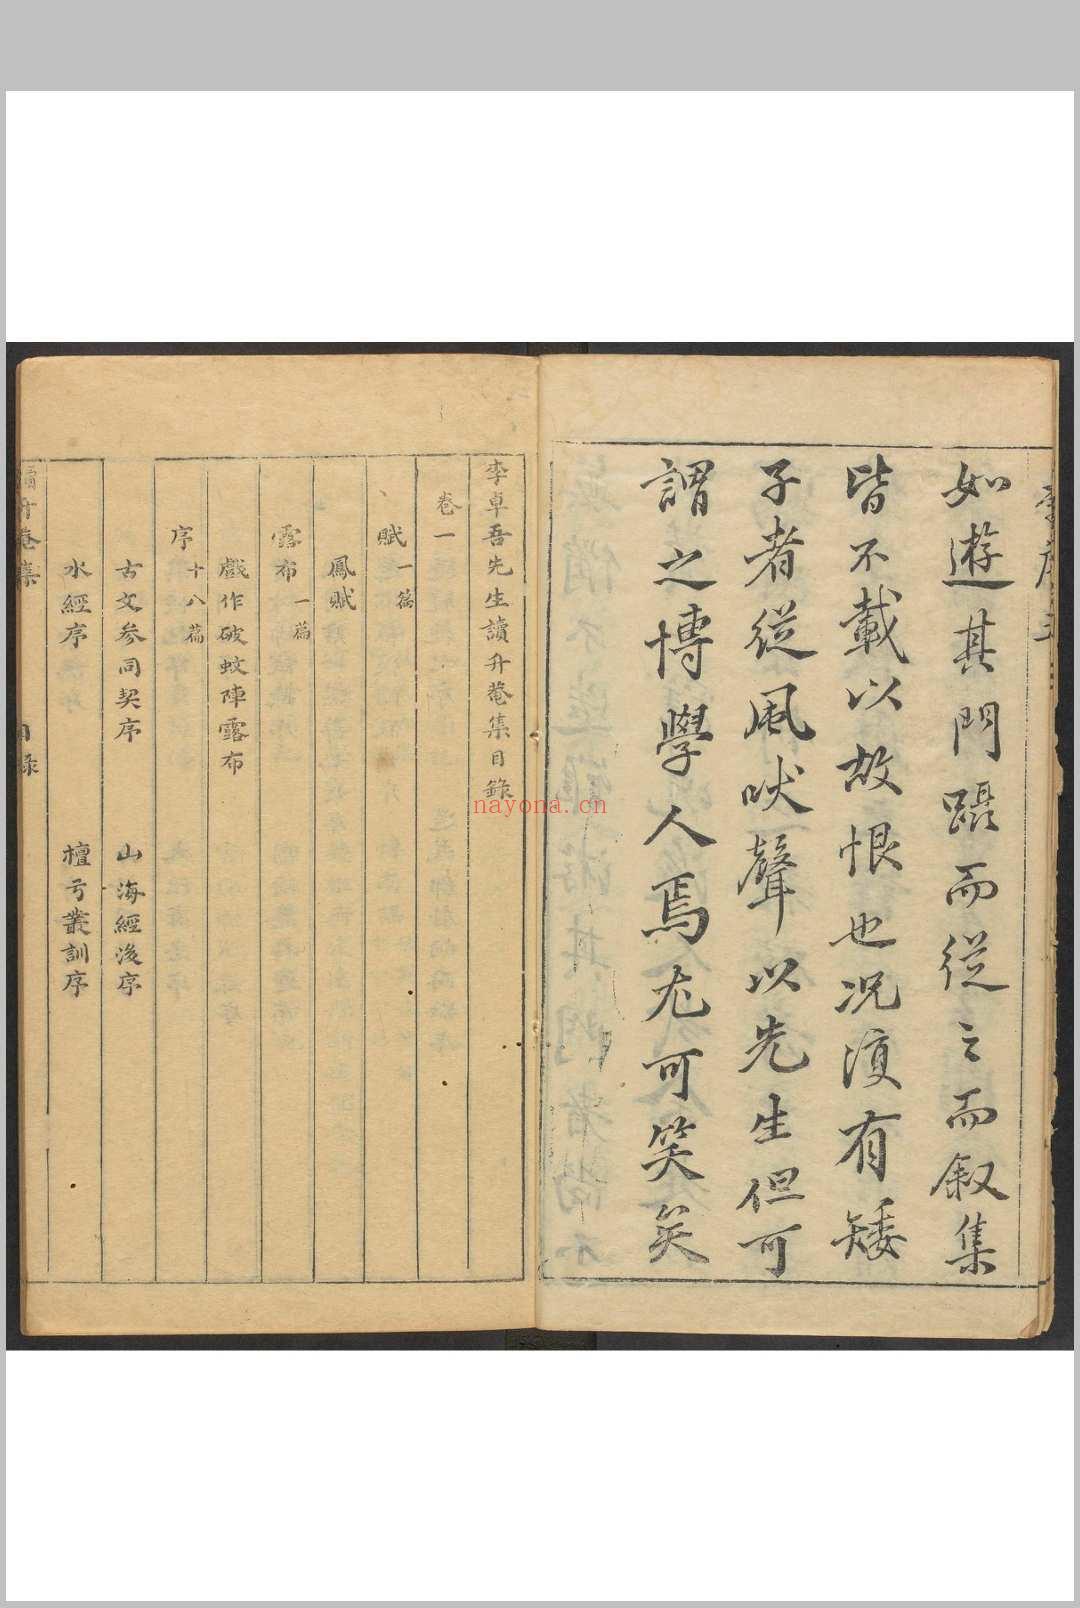 如遊其門躡而從之而叙集
皆不載以故恨也况復有矮
子者從風吠聲以先生但可
謂之博學人焉尤可笑矣
李卓吾先生讀升菴集目錄
卷一
賦一篇
鳳賦
露布一篇
戲作破蚊陣露布
序十八篇
古文参同契序 山海經後序
水經序 檀弓叢訓序
讀升菴集 目錄
nayona.cn